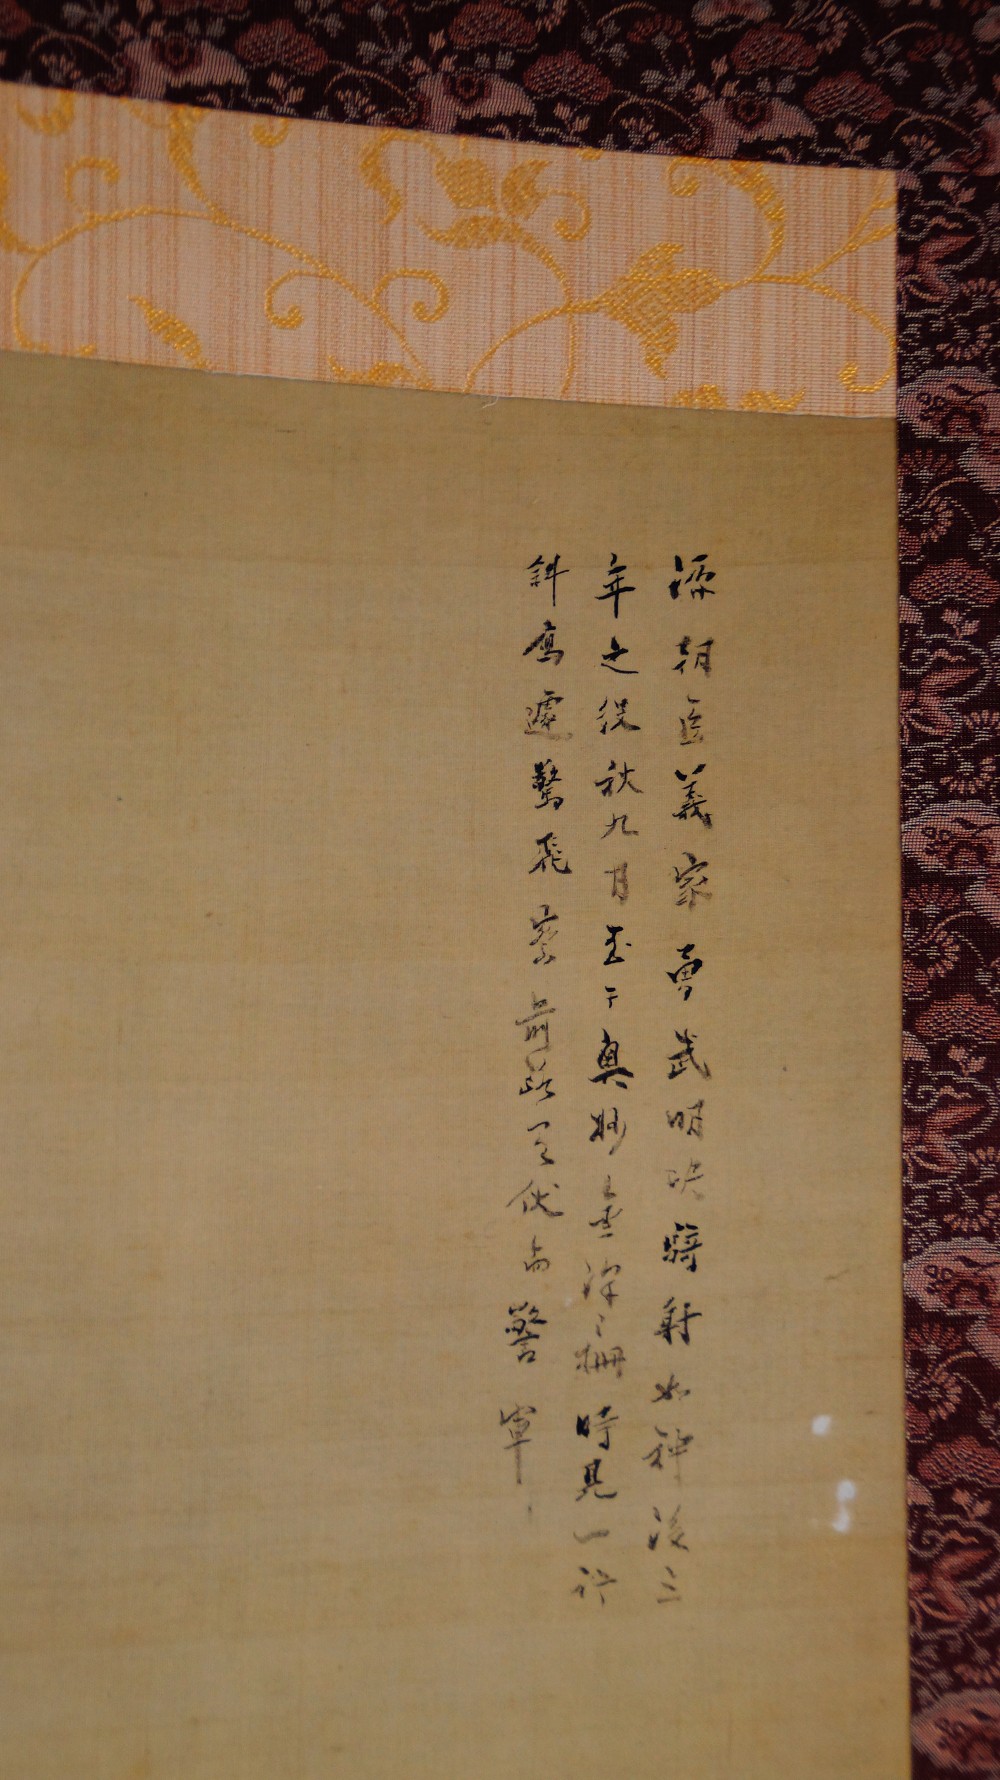 源朝臣義家勇武明决騎射如神後三
年之役秋九月至于奥妙金澤之柵時見一行
斜鳥遽驚飛察前路之伏而警軍